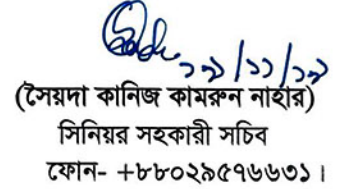 ১৯/১১/১৯
(সৈয়দা কানিজ কামরুন নাহার)
সিনিয়র সহকারী সচিব
ফোন- +৮৮০২৯৫৭৬৬৩১।